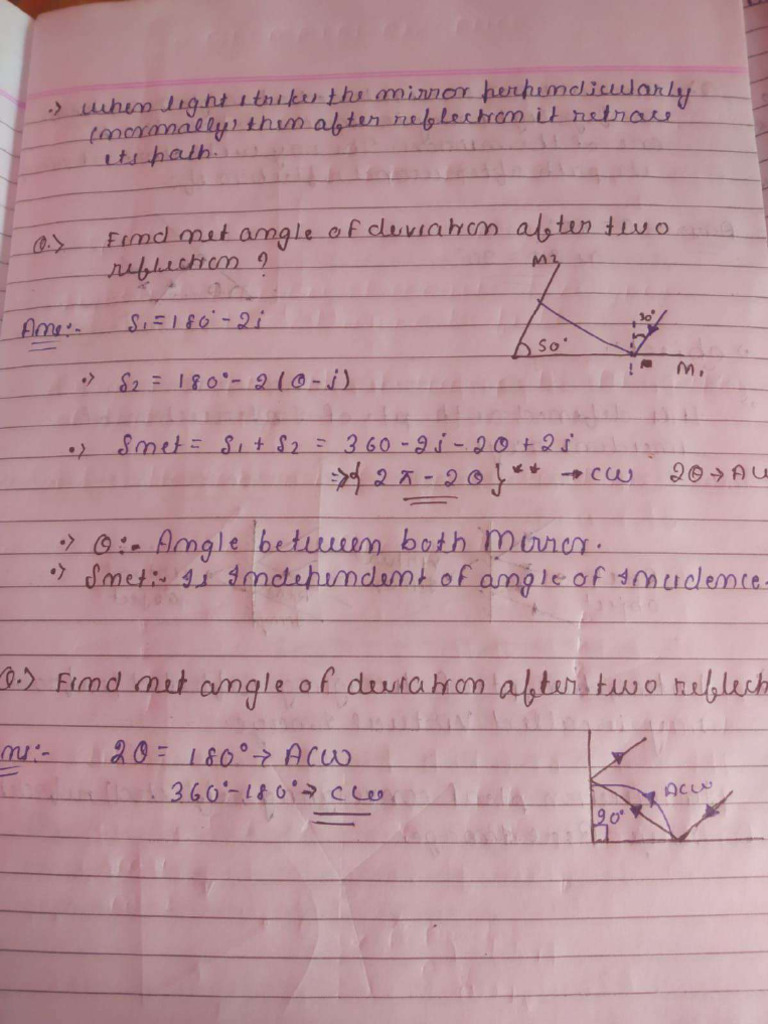 .) When light strikes the mirror perpendicularly
(normally) then after reflection it retrace
its path.
Q.) Find net angle of deviation after two
reflection ?
M2
30°
50°
i
M1
Ans:- δ1 = 180° - 2i
.) δ2 = 180° - 2(θ-i)
.) δnet = δ1 + δ2 = 360 - 2i - 2θ + 2i
⇒ { 2π - 2θ }** → CW 2θ → AC
.) θ:- Angle between both Mirror.
.) δnet:- Is Independent of angle of Incidence.
Q.) Find net angle of deviation after two reflect
ns:- 2θ = 180° → ACW
360° - 180° → CW
ACW
90°